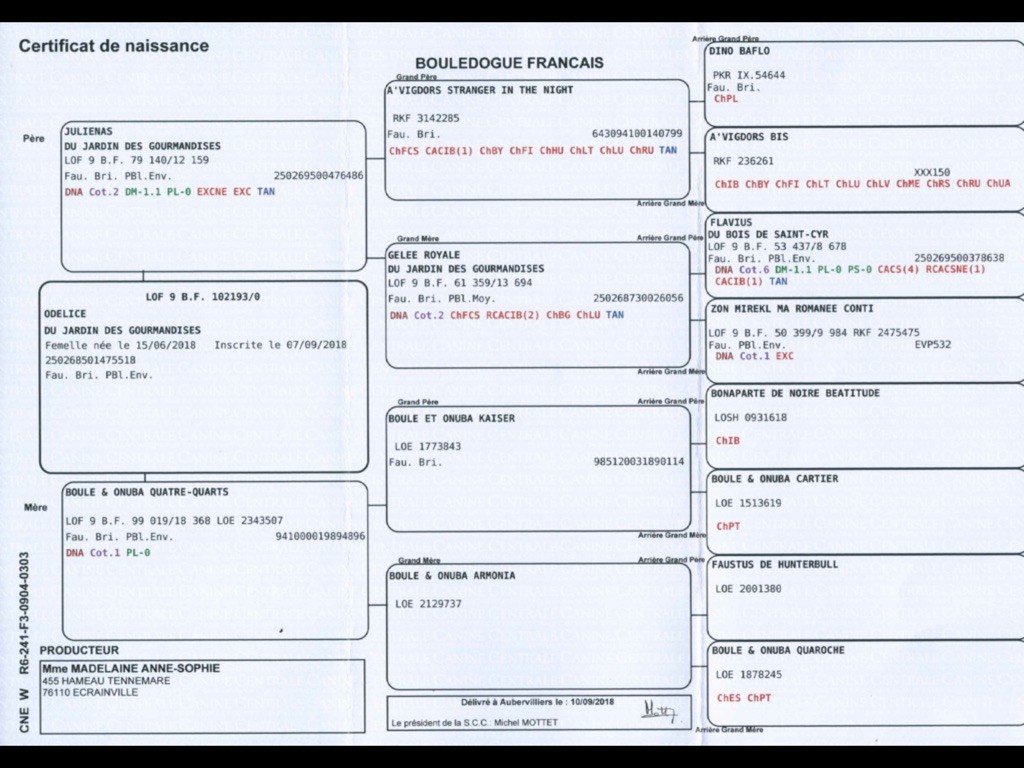 Certificat de naissance
BOULEDOGUE FRANCAIS
Père
JULIENAS
DU JARDIN DES GOURMANDISES
LOF 9 B.F. 79 140/12 159
Fau. Bri. PBl.Env. 250269500476486
DNA Cot.2 DM-1.1 PL-0 EXCNE EXC TAN
LOF 9 B.F. 102193/0
ODELICE
DU JARDIN DES GOURMANDISES
Femelle née le 15/06/2018 Inscrite le 07/09/2018
250268501475518
Fau. Bri. PBl.Env.
Mère
BOULE & ONUBA QUATRE-QUARTS
LOF 9 B.F. 99 019/18 368 LOE 2343507
Fau. Bri. PBl.Env. 941000019894896
DNA Cot.1 PL-0
PRODUCTEUR
Mme MADELAINE ANNE-SOPHIE
455 HAMEAU TENNEMARE
76110 ECRAINVILLE
CNE W R6-241-F3-0904-0303
Grand Père
A'VIGDORS STRANGER IN THE NIGHT
RKF 3142285
Fau. Bri. 643094100140799
ChFCS CACIB(1) ChBY ChFI ChHU ChLT ChLU ChRU TAN
Grand Mère
GELEE ROYALE
DU JARDIN DES GOURMANDISES
LOF 9 B.F. 61 359/13 694
Fau. Bri. PBl.Moy. 250268730026056
DNA Cot.2 ChFCS RCACIB(2) ChBG ChLU TAN
Grand Père
BOULE ET ONUBA KAISER
LOE 1773843
Fau. Bri. 985120031890114
Grand Mère
BOULE & ONUBA ARMONIA
LOE 2129737
Délivré à Aubervilliers le : 10/09/2018
Le président de la S.C.C.: Michel MOTTET
Arrière Grand Père
DINO BAFLO
PKR IX.54644
Fau. Bri.
ChPL
A'VIGDORS BIS
RKF 236261
XXX150
ChIB ChBY ChFI ChLT ChLU ChLV ChME ChRS ChRU ChUA
Arrière Grand Mère
Arrière Grand Père
FLAVIUS
DU BOIS DE SAINT-CYR
LOF 9 B.F. 53 437/8 678
Fau. Bri. PBl.Env. 250269500378638
DNA Cot.6 DM-1.1 PL-0 PS-0 CACS(4) RCACSNE(1)
CACIB(1) TAN
ZON MIREKL MA ROMANEE CONTI
LOF 9 B.F. 50 399/9 984 RKF 2475475
Fau. PBl.Env. EVP532
DNA Cot.1 EXC
Arrière Grand Mère
Arrière Grand Père
BONAPARTE DE NOIRE BEATITUDE
LOSH 0931618
ChIB
BOULE & ONUBA CARTIER
LOE 1513619
ChPT
Arrière Grand Mère
Arrière Grand Père
FAUSTUS DE HUNTERBULL
LOE 2001380
BOULE & ONUBA QUAROCHE
LOE 1878245
ChES ChPT
Arrière Grand Mère